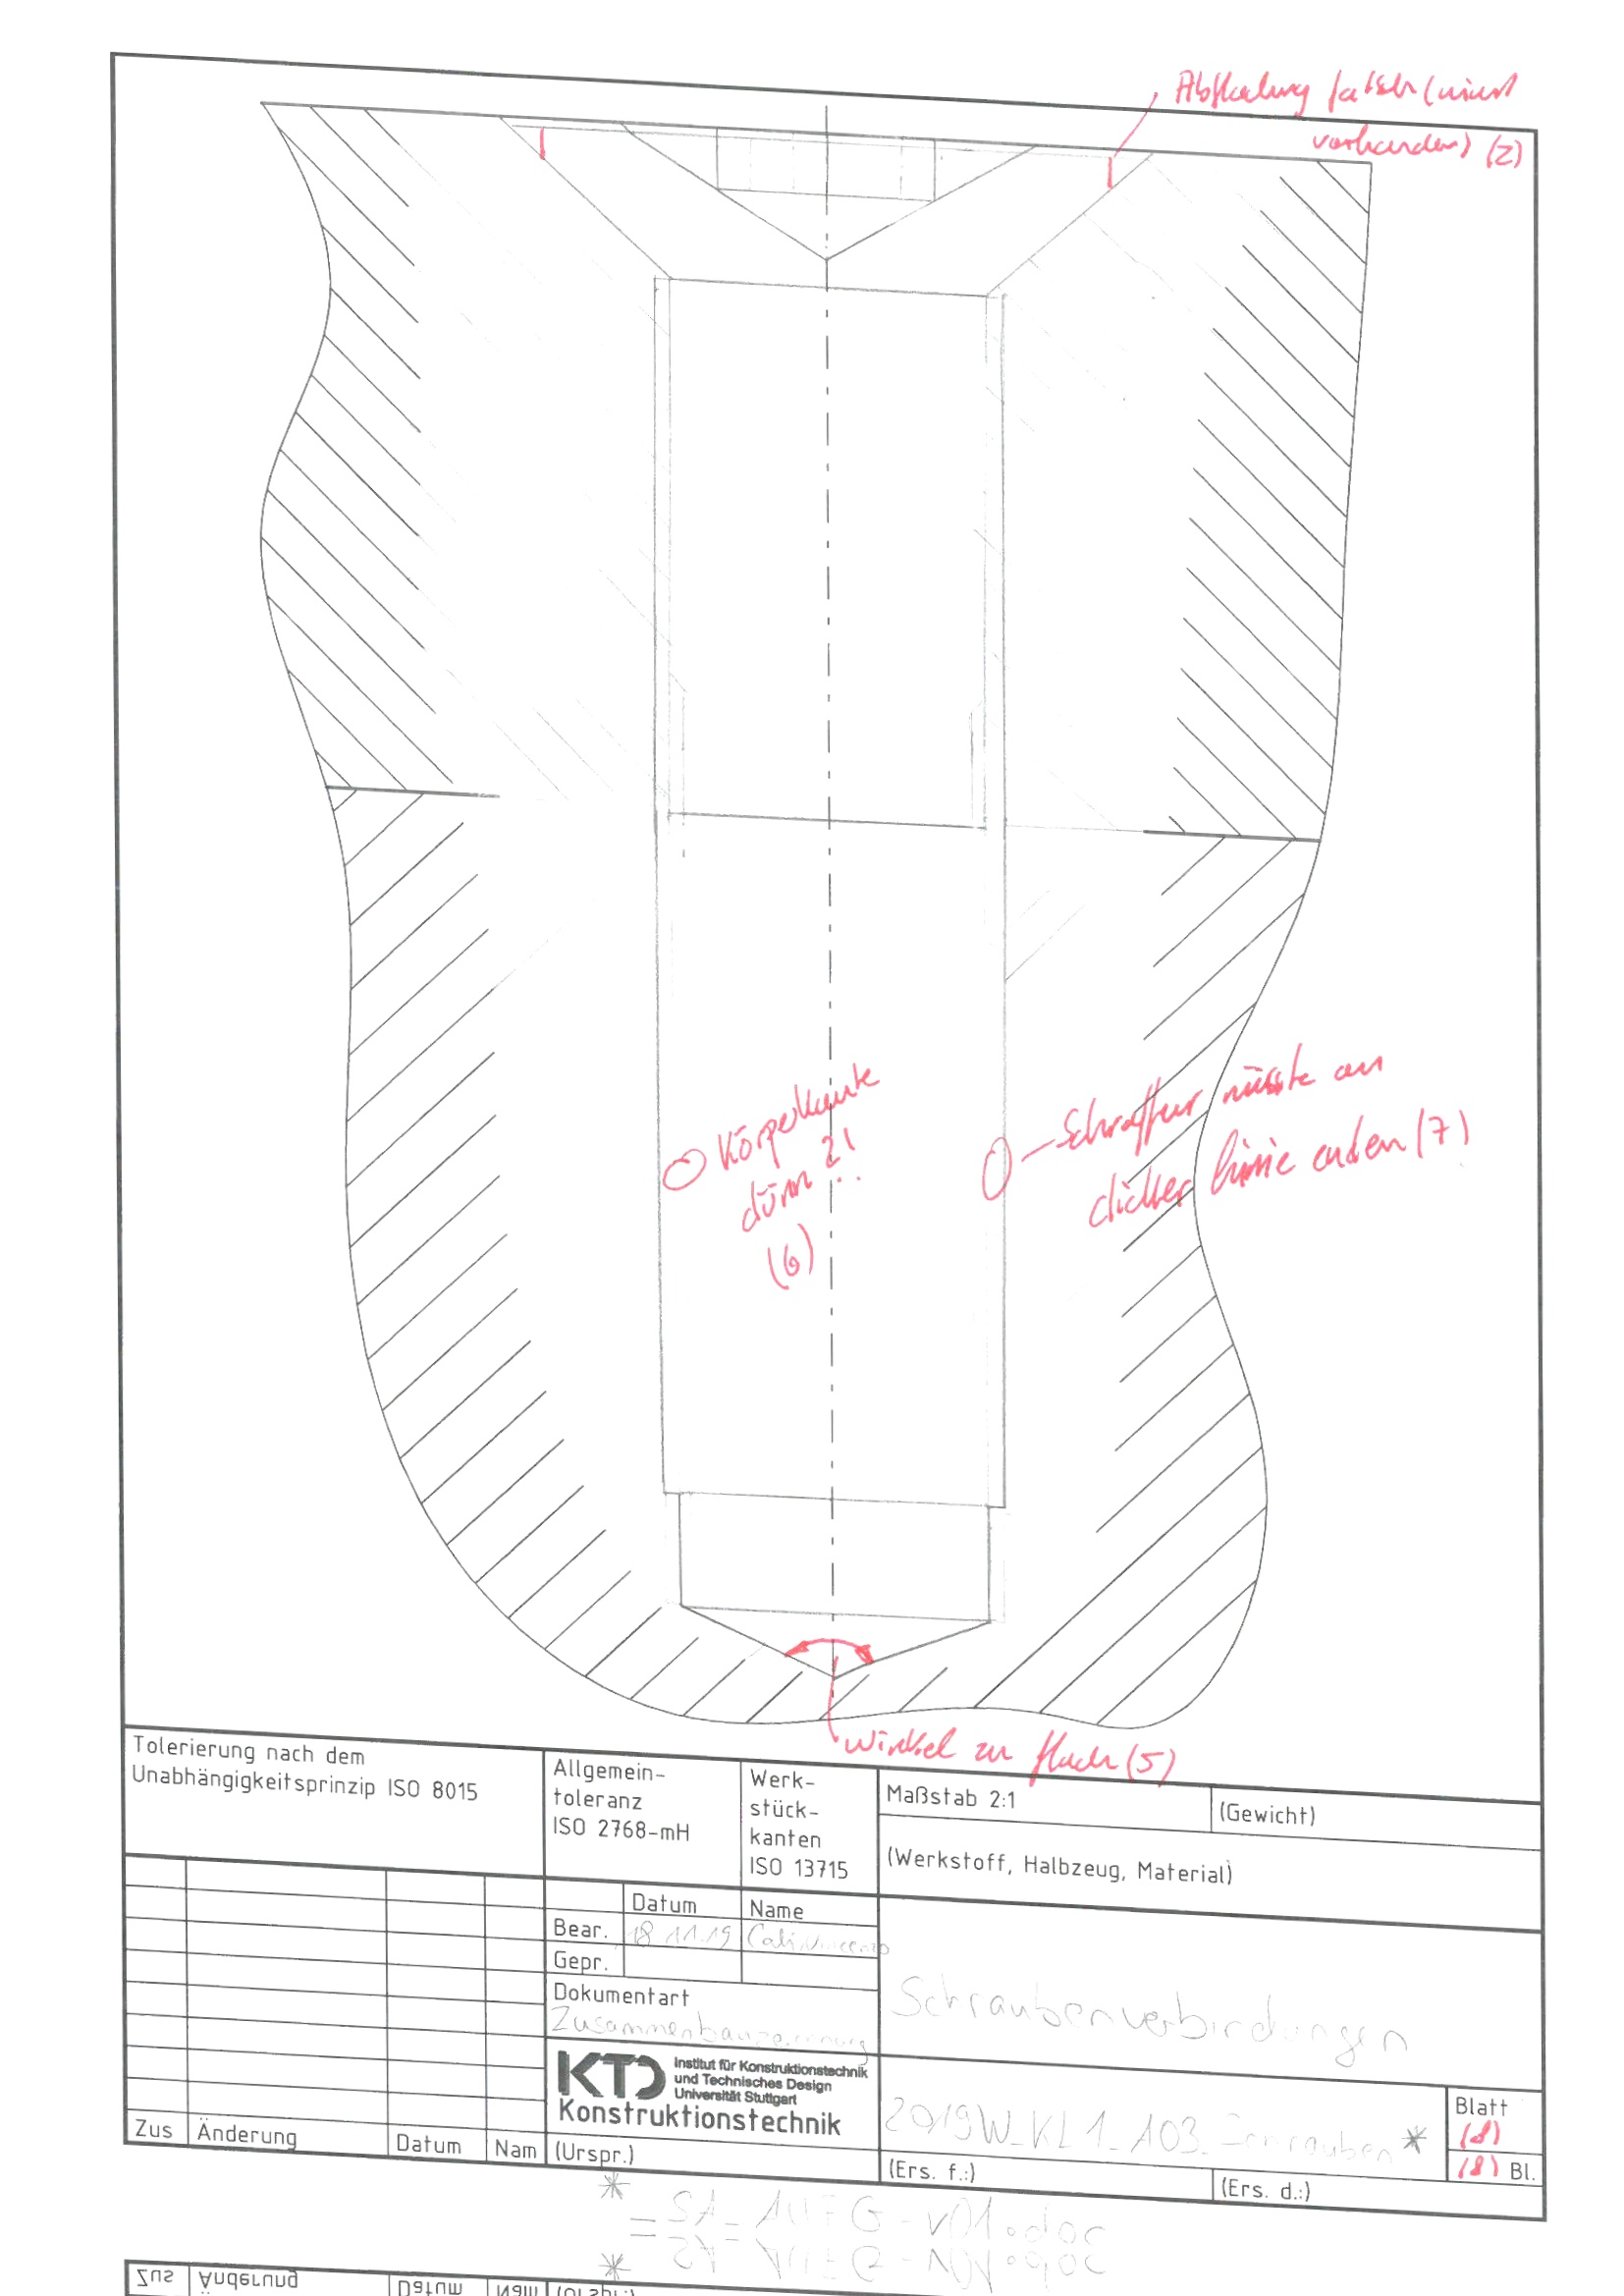 Abflachung falsch (nicht
vorhanden) (2)
Körperkante
dünn ?!
(6)
Schraffur müsste an
dicker Linie enden (7)
Winkel zu flach (5)
Tolerierung nach dem
Unabhängigkeitsprinzip ISO 8015
Allgemein-
toleranz
ISO 2768-mH
Werk-
stück-
kanten
ISO 13715
Maßstab 2:1
(Gewicht)
(Werkstoff, Halbzeug, Material)
Datum Name
Bear. 18.11.19 Cali, Vincenzo
Gepr.
Dokumentart
Zusammenbauzeichnung
Schraubenverbindungen
KTD Institut für Konstruktionstechnik
und Technisches Design
Universität Stuttgart
Konstruktionstechnik
2019W_KL1_A03_Schrauben*
Blatt
(8)
(8) Bl.
Zus Änderung Datum Nam (Urspr.)
(Ers. f.:)
(Ers. d.:)
*